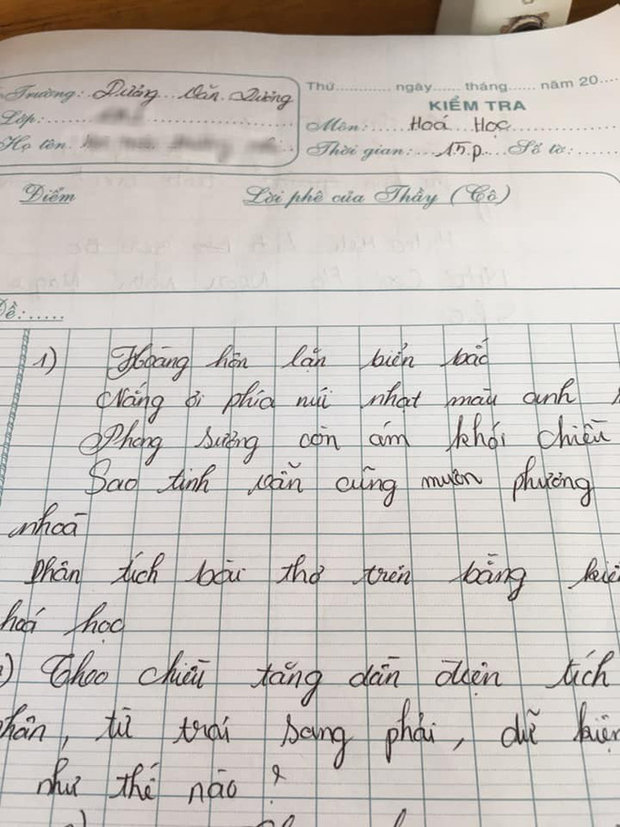 Trường: Dương Văn Dương
Thứ............ ngày...... tháng...... năm 20....
KIỂM TRA
Lớp:
Môn:..... Hoá Học
Họ tên:
Thời gian:... 15p... Số tờ:.....
Điểm
Lời phê của Thầy (Cô)
Đề:......
1) Hoàng hôn lặn biển bắc
Nắng ở phía núi nhạt màu anh
Phong sương còn ám khói chiều
Sao tinh vẫn cũng muôn phương
nhoà
Phân tích bài thơ trên bằng kiế
hoá học
) Theo chiều tăng dần điện tích
hân, từ trái sang phải, dữ kiện
như thế nào?